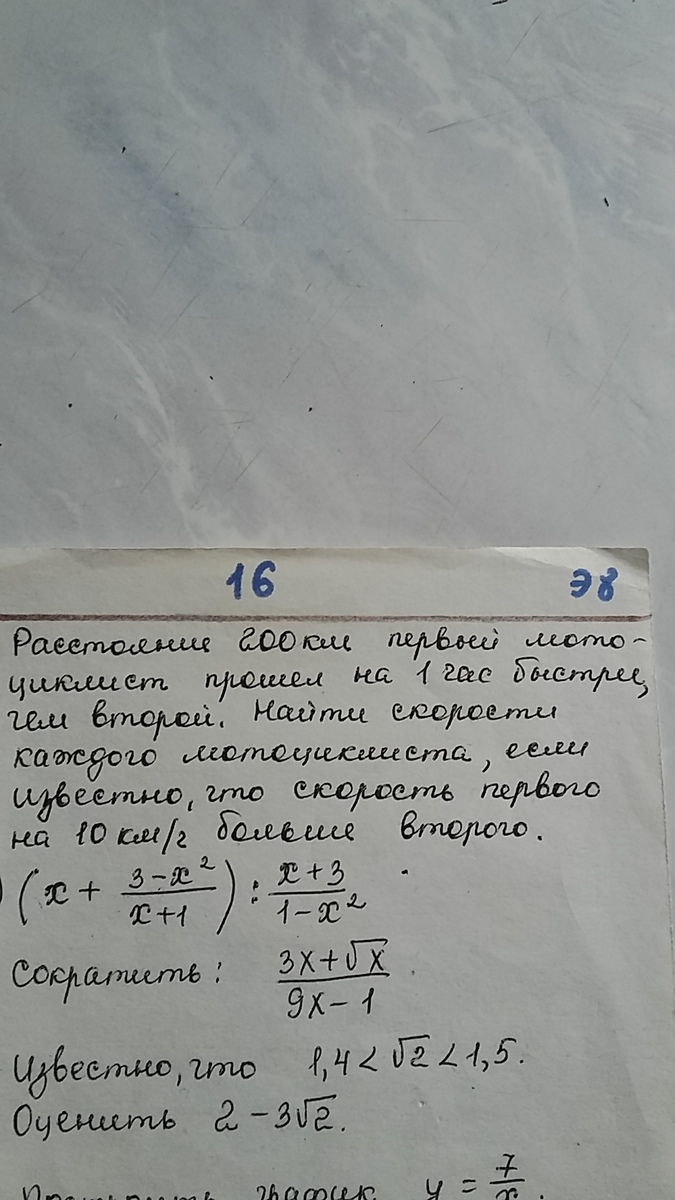 16 Э8
Расстояние 200км первый мото-
циклист прошел на 1 час быстрее,
чем второй. Найти скорости
каждого мотоциклиста, если
известно, что скорость первого
на 10 км/ч больше второго.
) (x + \frac{3-x^2}{x+1}) : \frac{x+3}{1-x^2}
Сократить: \frac{3x+\sqrt{x}}{9x-1}
Известно, что 1,4 < √2 < 1,5.
Оценить 2 - 3√2.
Построить график y = \frac{7}{x}.